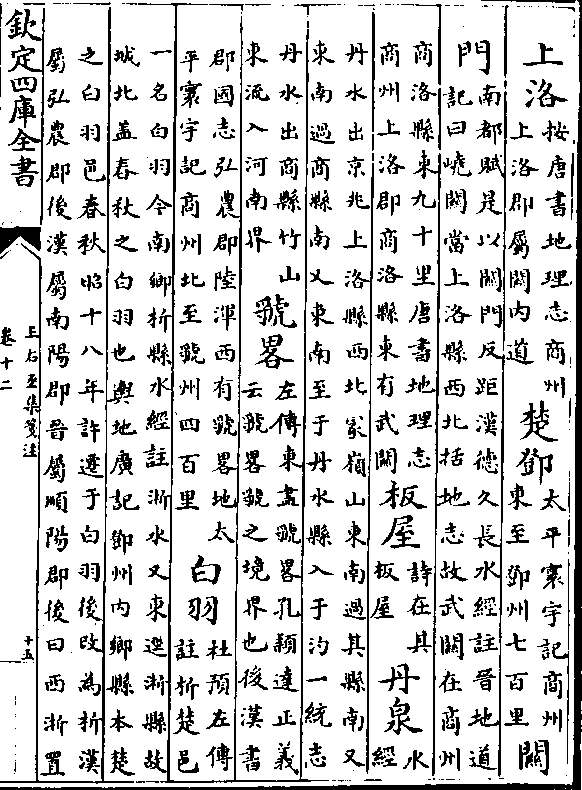 上洛按唐書地理志商州上洛郡屬關内道楚鄧太平寰宇記商州東至鄧州七百里關
門南都賦是以關門反距漢德久長水經註晉地道記曰嶢關當上洛縣西北括地志故武關在商州
商洛縣東九十里唐書地理志商州上洛郡商洛縣東有武關板屋詩在其板屋丹泉水經
丹水出京兆上洛縣西北冢嶺山東南過其縣南又東南過商縣南又東南至于丹水縣入于汋一統志
丹水出商縣竹山東流入河南界虢畧左傳東盡虢畧孔穎達正義云虢畧虢之境界也後漢書
郡國志弘農郡陸渾西有虢畧地太平寰宇記商州北至虢州四百里白羽杜預左傳註析楚邑
一名白羽今南鄉析縣水經註淅水又東逕淅縣故城北盖春秋之白羽也輿地廣記鄧州内鄉縣本楚
之白羽邑春秋昭十八年許遷于白羽後改為析漢屬弘農郡後漢屬南陽郡晉屬順陽郡後曰西淅置
欽定四庫全書
王右丞集箋注
卷十二
十五